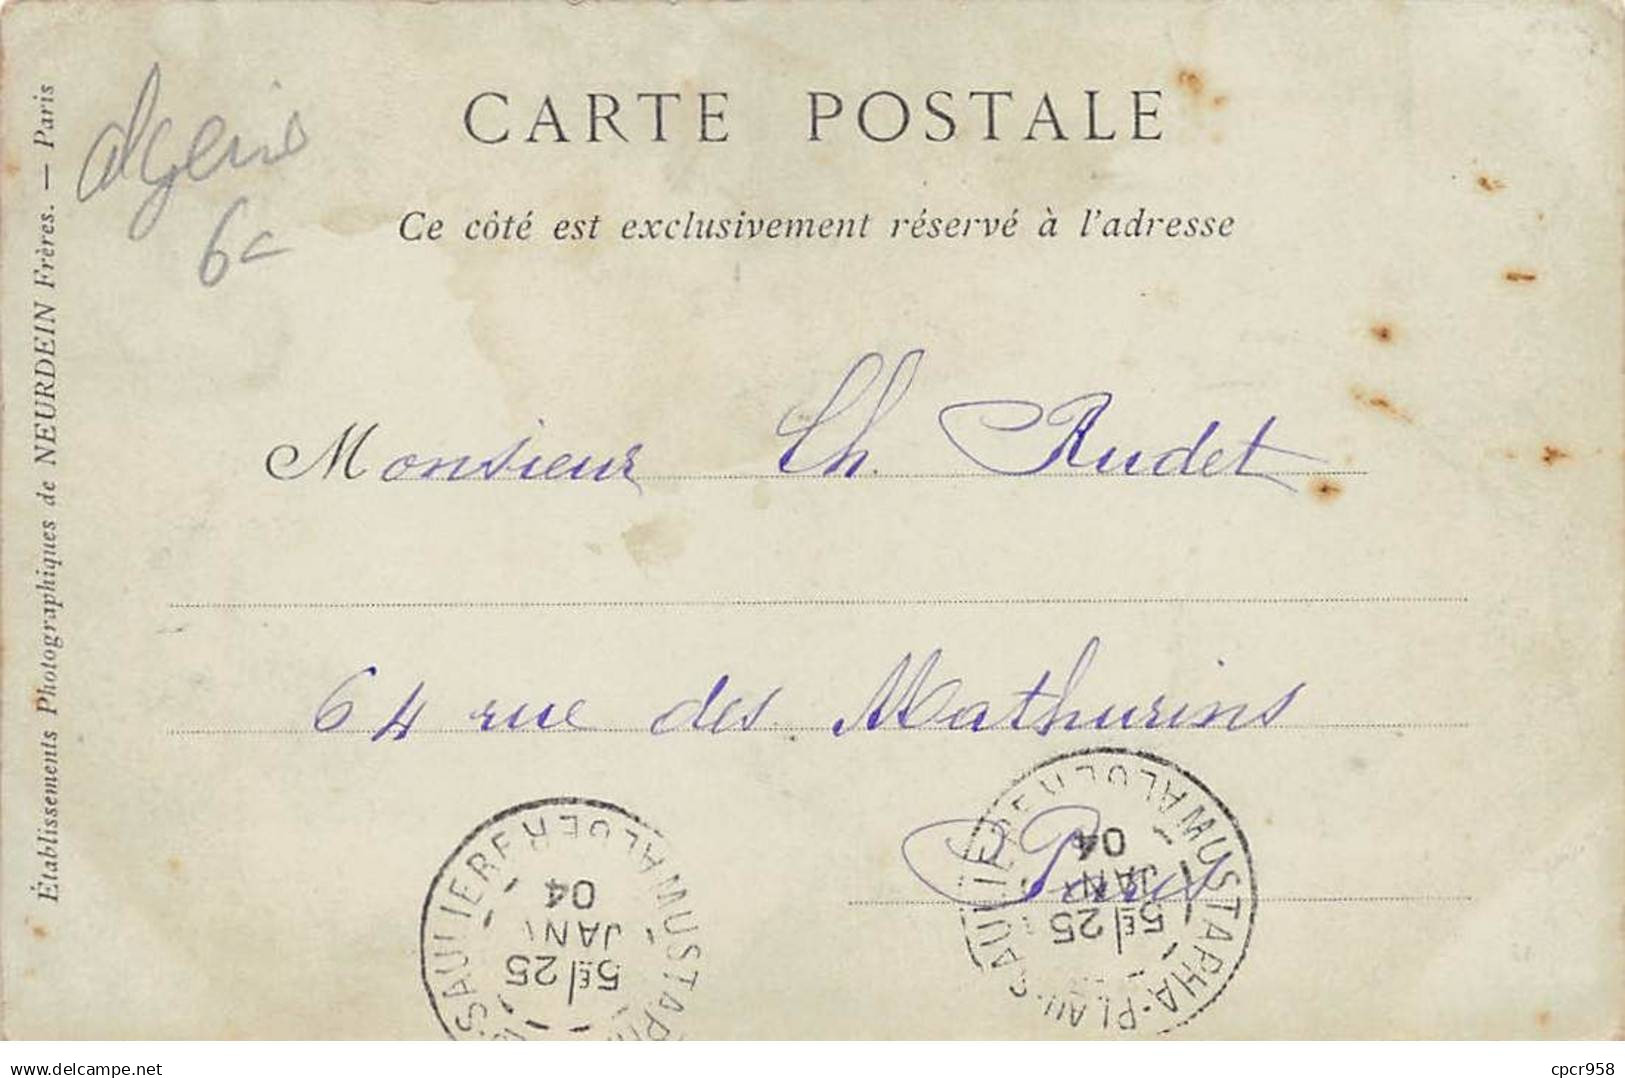 CARTE POSTALE
Ce côté est exclusivement réservé à l'adresse
Algérie
6c
Établissements Photographiques de NEURDEIN Frères. — Paris
Monsieur Ch. Rudet
64 rue des Mathurins
Paris
MUSTAPHA-PLAU-SAULIERE ALGER
5E/25
JANV
04
MUSTAPHA SAULIERE ALGER
5E/25
JANV
04
delcampe.net
cpcr958